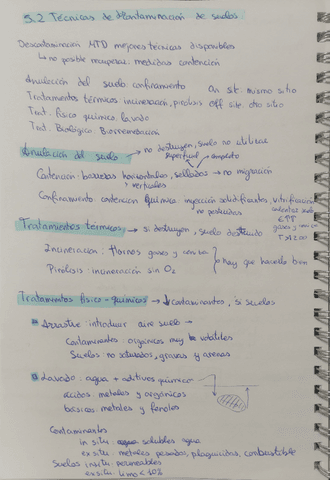 5.2 Técnicas de descontaminación de suelos
Descontaminación MTD mejores técnicas disponibles
↳ no posible recuperar: medidas contención
Anulación del suelo confinamiento On sit. mismo sitio
Tratamientos térmicos incineración, pirólisis Off site. otro sitio
Trat. físico químico lavado
Trat. Biológico. Biorremediación
Anulación del suelo → no destruyen, suelo no utilizar
superficial completo
Contención: barreras horizontales, sellados → no migración
verticales
Confinamiento: contención química. inyección solidificantes, vitrificación
no pesticidas calentar suelo
gases y
Tª 1200
Tratamientos térmicos → si destruyen, suelo destruido
Incineración: Hornos gases y ceniza
Pirólisis: incineración sin O2
hay que hacerlo bien
Tratamientos físico-químicos → ↓ contaminantes, si suelos
Arrastre: introducir aire suelo →
Contaminantes: orgánicos muy volátiles
Suelos no saturados, gravas y arenas
Lavado: agua + aditivos químicos
ácidos: metales y orgánicos
básicos: metales y fenoles
Contaminantes
in situ solubles agua
ex situ metales pesados, plaguicidas, combustible
Suelos in situ: permeables
ex situ limo < 10%